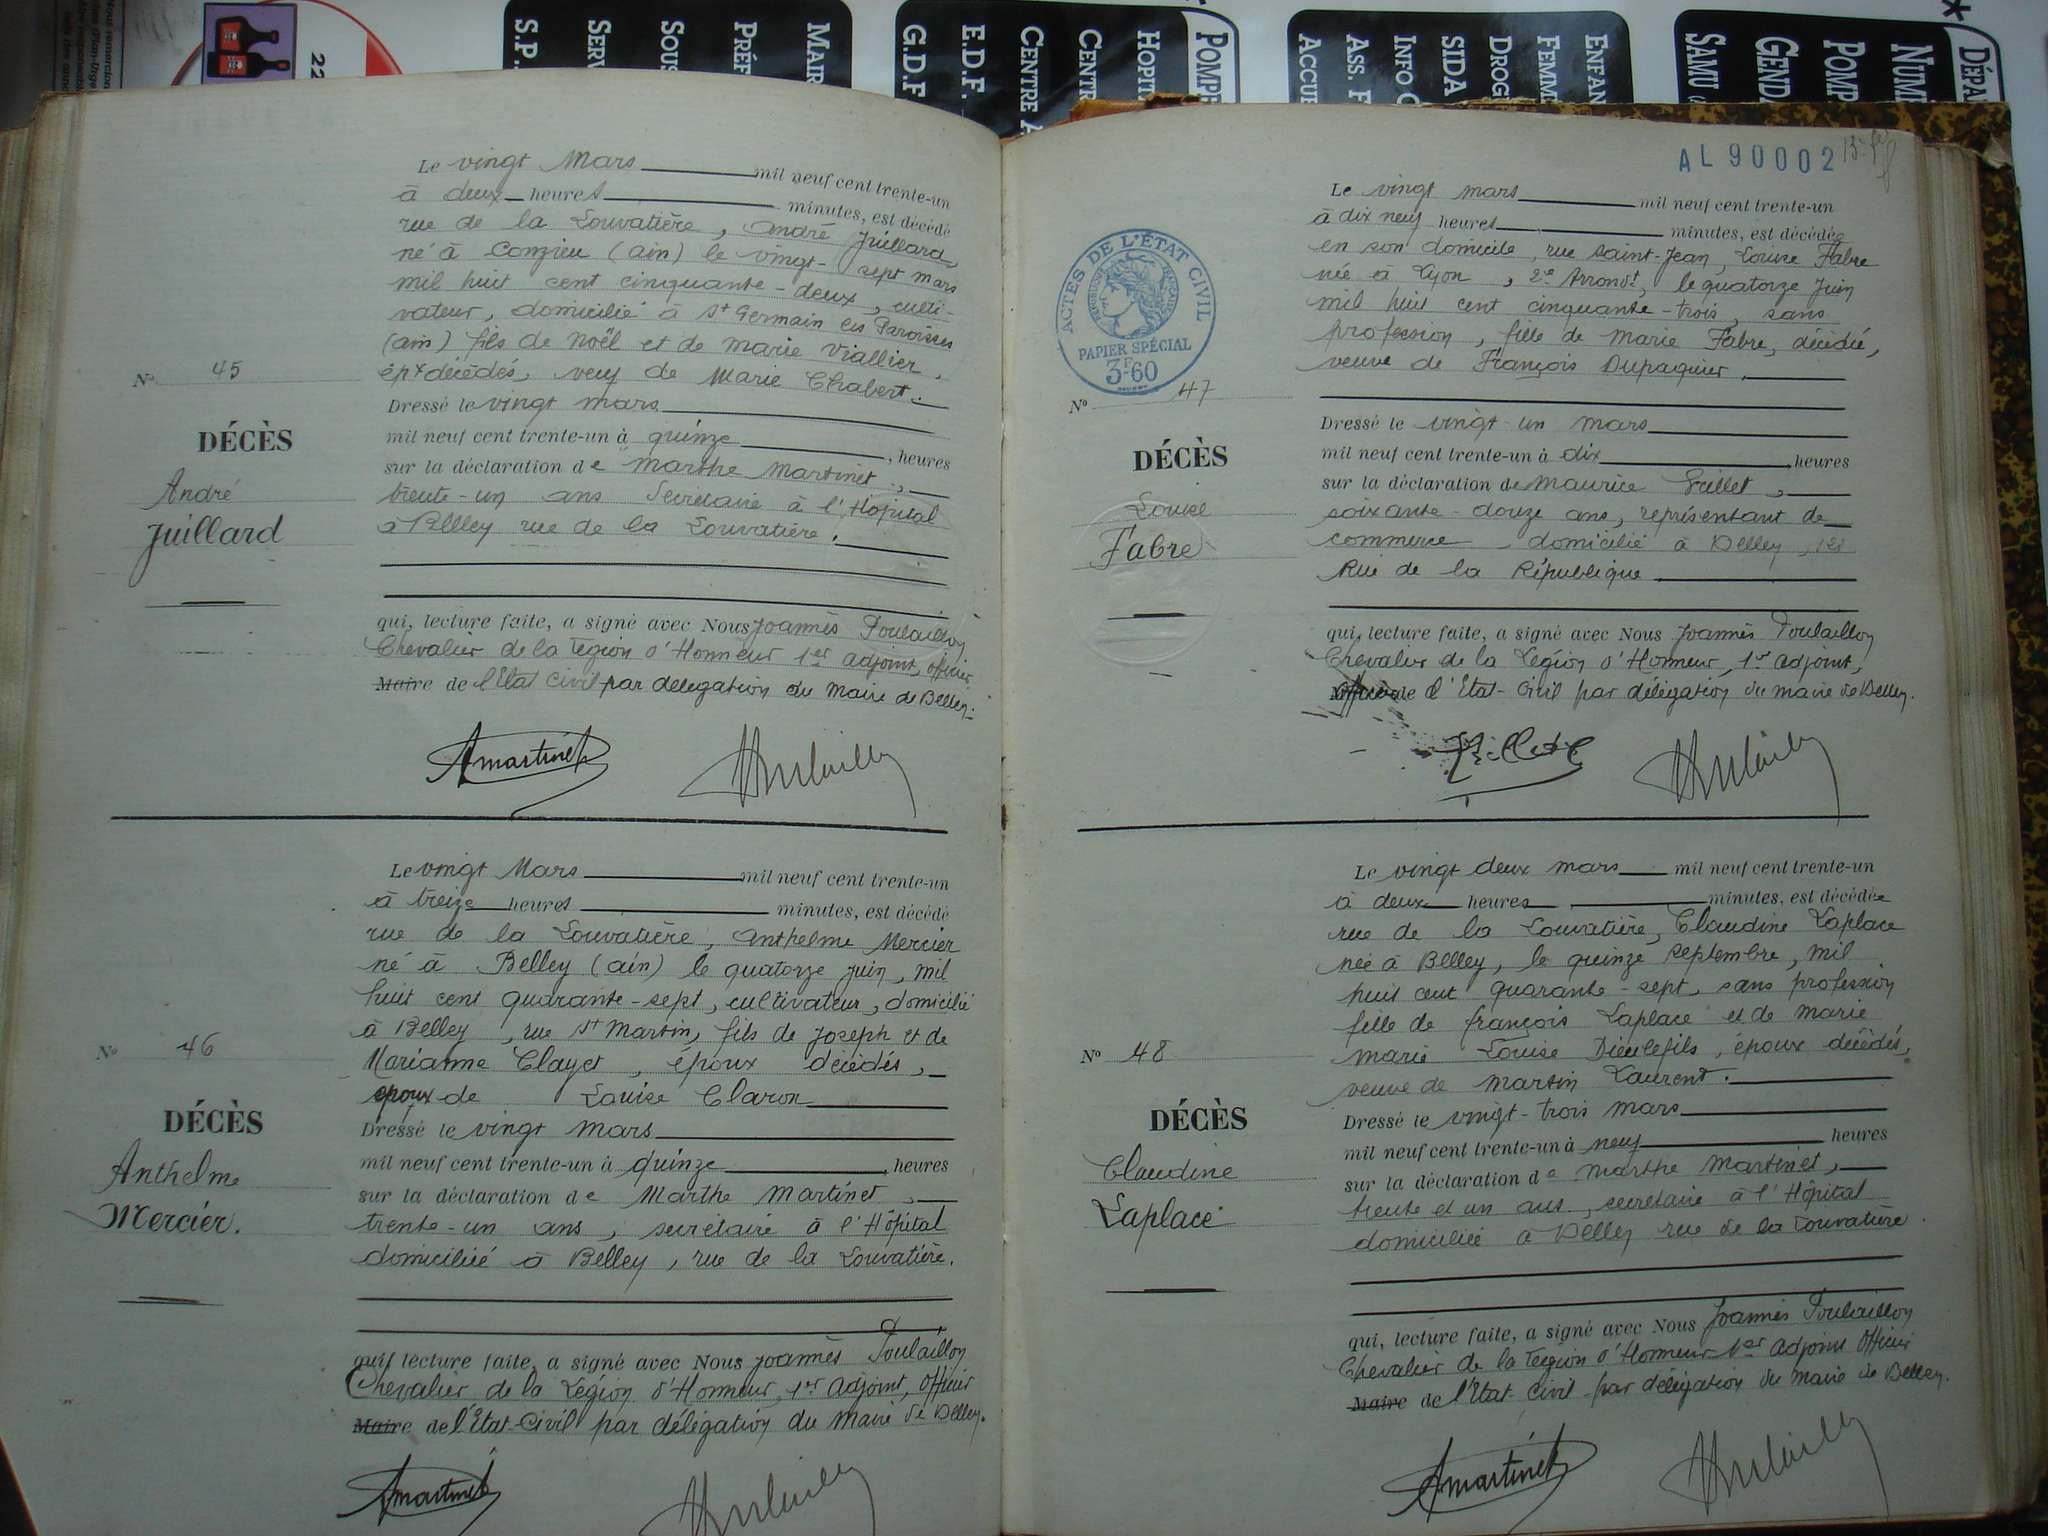 22
MAIR
PRÉF
SOUS
SERV
S.P.
POMPE
HOPITA
CENTR
CENTRE A
E.D.F.
G.D.F
ENFAN
FEMM
DROG
SIDA
INFO
ASS. F
ACCUE
DÉPA
NUMÉ
POMP
GENDA
SAMU
Le vingt Mars mil neuf cent trente-un
à deux heures minutes, est décédé
rue de la Louvatière, André Juillard,
né à Conzieu (ain) le vingt-sept mars
mil huit cent cinquante-deux, culti-
vateur, domicilié à St Germain les Paroisses
(ain) fils de Noël et de Marie Viallier,
épx décédés, veuf de Marie Chabert.
No 45
DÉCÈS
André
Juillard
Dressé le vingt mars
mil neuf cent trente-un à quinze heures
sur la déclaration de Marthe Martinet,
trente-un ans Secrétaire à l'Hôpital
à Belley rue de la Louvatière.
qui, lecture faite, a signé avec Nous Joannès Poulaillon
Chevalier de la Légion d'Honneur 1er adjoint, officier
Maire de l'Etat civil par délégation du Maire de Belley.
AMartinet
Le vingt Mars mil neuf cent trente-un
à treize heures minutes, est décédé
rue de la Louvatière, Anthelme Mercier
né à Belley (ain) le quatorze juin, mil
huit cent quarante-sept, cultivateur, domicilié
à Belley, rue St Martin, fils de Joseph et de
Marianne Clayet, époux décédés,
époux de Louise Claron
No 46
DÉCÈS
Anthelme
Mercier.
Dressé le vingt mars
mil neuf cent trente-un à quinze heures
sur la déclaration de Marthe Martinet,
trente-un ans, secrétaire à l'Hôpital
domiciliée à Belley, rue de la Louvatière.
qui, lecture faite, a signé avec Nous Joannès Poulaillon
Chevalier de la Légion d'Honneur, 1er Adjoint, Officier
Maire de l'Etat-Civil par délégation du Maire de Belley.
AMartinet
AL 90002
ACTES DE L'ÉTAT CIVIL
RÉPUBLIQUE FRANÇAISE
PAPIER SPÉCIAL
3F60
Le vingt mars mil neuf cent trente-un
à dix neuf heures minutes, est décédée
en son domicile, rue Saint-Jean, Louise Fabre
née à Lyon, 2e Arrondt, le quatorze Juin
mil huit cent cinquante-trois, sans
profession, fille de Marie Fabre, décédée,
veuve de François Dupaquier,
No 47
DÉCÈS
Louise
Fabre
Dressé le vingt-un mars
mil neuf cent trente-un à dix heures
sur la déclaration de Maurice Grillet,
soixante-douze ans, représentant de
commerce, domicilié à Belley,
Rue de la République
qui, lecture faite, a signé avec Nous Joannès Poulaillon
Chevalier de la Légion d'Honneur, 1er adjoint,
Officier de l'Etat-Civil par délégation du maire de Belley.
Le vingt deux mars mil neuf cent trente-un
à deux heures minutes, est décédée
rue de la Louvatière, Claudine Laplace
née à Belley, le quinze Septembre, mil
huit cent quarante-sept, sans profession
fille de François Laplace et de Marie
Marie Louise Dieulefils, époux décédés,
veuve de Martin Laurent.
No 48
DÉCÈS
Claudine
Laplace
Dressé le vingt-trois mars
mil neuf cent trente-un à neuf heures
sur la déclaration de Marthe Martinet,
trente et un ans, secrétaire à l'Hôpital
domiciliée à Belley rue de la Louvatière
qui, lecture faite, a signé avec Nous Joannès Poulaillon
Chevalier de la Légion d'Honneur 1er adjoint Officier
Maire de l'Etat-Civil par délégation du maire de Belley.
AMartinet